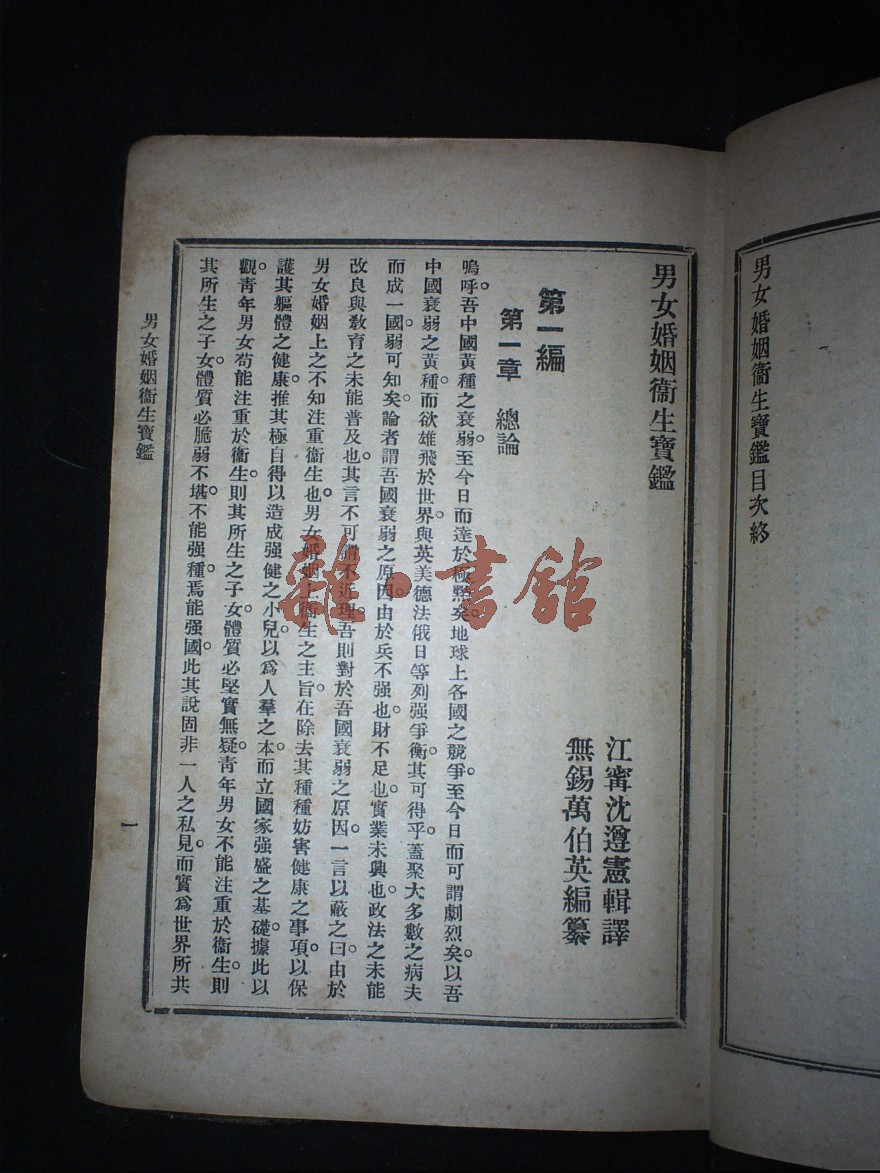 男女婚姻衞生寶鑑目次終
男女婚姻衞生寶鑑
江甯沈遵憲輯譯
無錫萬伯英編纂
第一編
第一章　總論
嗚呼。吾中國黃種之衰弱。至今日而達於極點矣。地球上各國之競爭。至今日而可謂劇烈矣。以吾
中國衰弱之黃種。而欲雄飛於世界。與英美德法俄日等列强爭衡。其可得乎。蓋聚大多數之病夫
而成一國。弱可知矣。論者謂吾國衰弱之原因。由於兵不强也。財不足也。實業未興也。政法之未能
改良與敎育之未能普及也。其言不可謂不近理。吾則對於吾國衰弱之原因。一言以蔽之曰。由於
男女婚姻上之不知注重衞生也。男女婚姻上衞生之主旨。在除去其種種妨害健康之事項。以保
護其軀體之健康。推其極自得以造成强健之小兒。以爲人羣之本。而立國家强盛之基礎。據此以
觀。靑年男女苟能注重於衞生。則其所生之子女。體質必堅實無疑。靑年男女不能注重於衞生。則
其所生之子女。體質必脆弱不堪。不能强種。焉能强國。此其說固非一人之私見。而實爲世界所共
男女婚姻衞生寶鑑
一
雜·書館